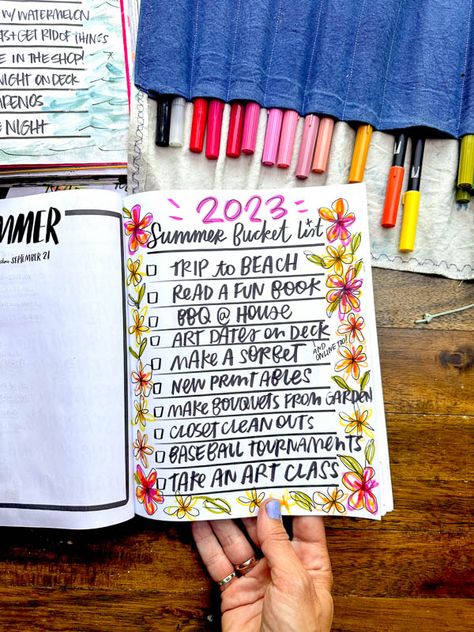 W/ WATERMELON
+ GET RID OF THINGS
IN THE SHOP!
NIGHT ON DECK
NIGHT
SEPTEMBER 21
2023
Summer Bucket List
TRIP to BEACH
READ A FUN BOOK
BBQ @ HOUSE
ART DATES on DECK
MAKE A SORBET
AND ONLINE TOO!
NEW PRINTABLES
MAKE BOUQUETS FROM GARDEN
CLOSET CLEAN OUTS
BASEBALL TOURNAMENTS
TAKE AN ART CLASS